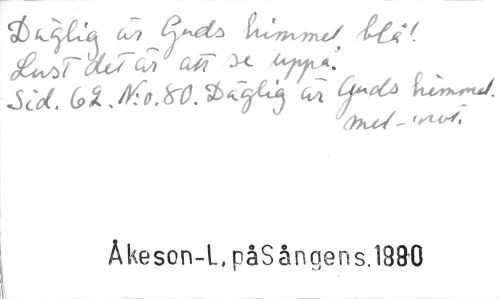 Däglig är Guds himmel blå!
Lust det är att se uppå!
Sid. 62. N:o. 80. Däglig är Guds himmel.
mel-not.
Åkeson-L, påSångens.1880